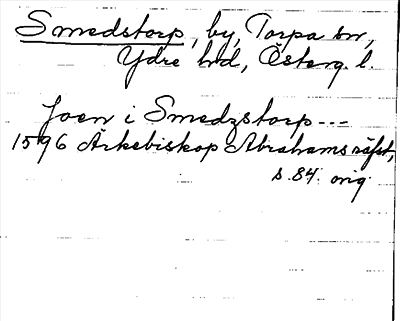 Smedstorp, by, Torpa sn,
Ydre hd, Österg. l.
Joen i Smedzstorp ---
1596 Ärkebiskop Abrahams räfst,
s. 84. orig.